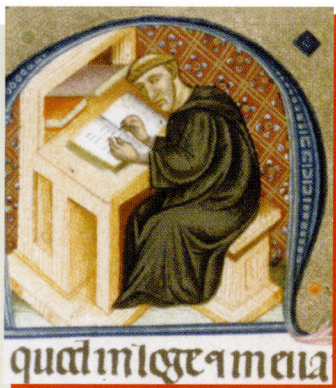 quod in lege ⁊ in eua